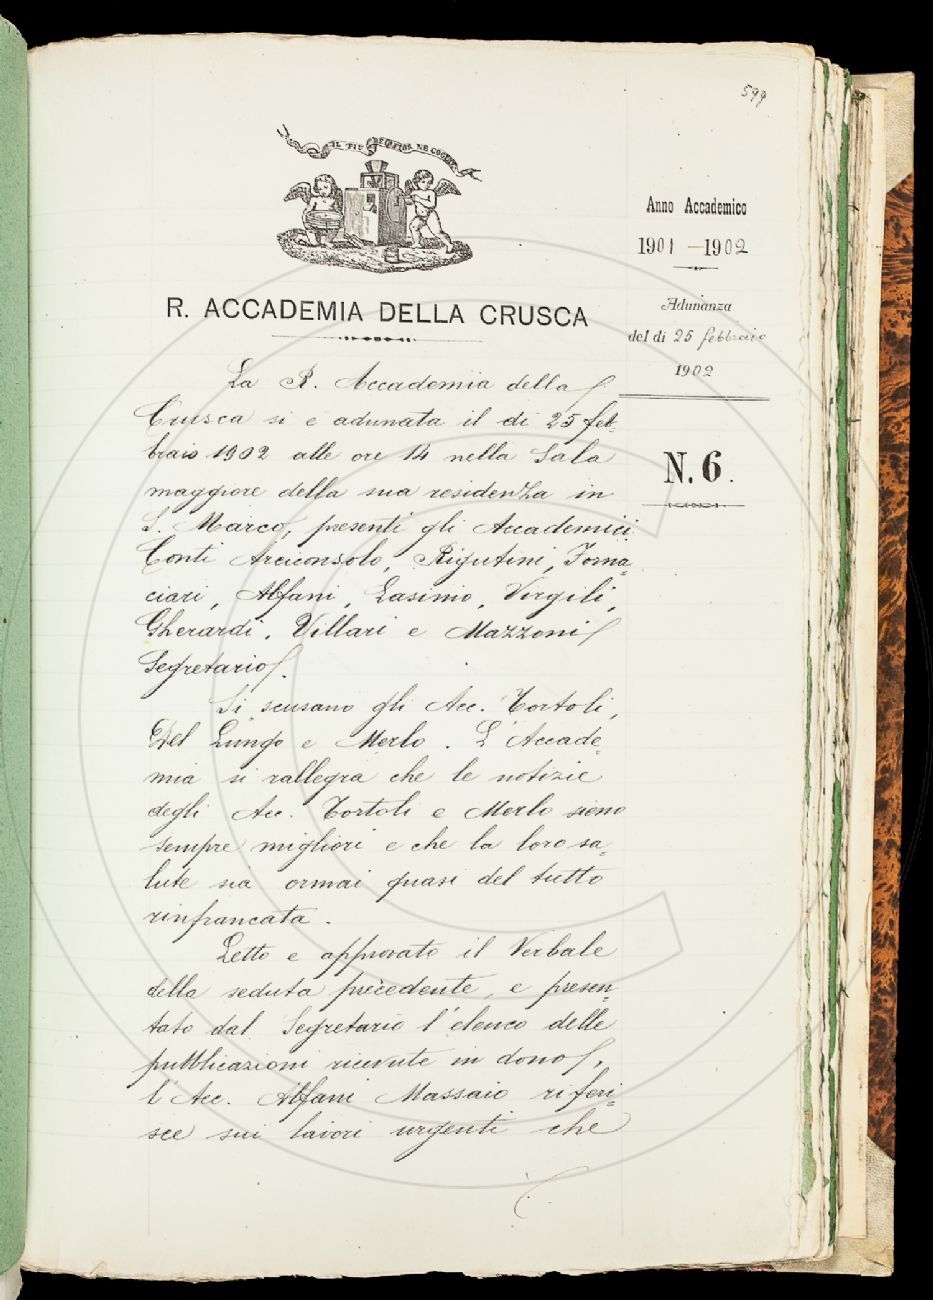 599
IL PIÙ BEL FIOR NE COGLIE
R. ACCADEMIA DELLA CRUSCA
Anno Accademico
1901 - 1902
Adunanza
del dì 25 febbraio
1902
N. 6.
La R. Accademia della
Crusca si è adunata il dì 25 feb-
braio 1902 alle ore 14 nella Sala
maggiore della sua residenza in
S. Marco, presenti gli Accademici
Conti Arciconsolo, Rigutini, Forna-
ciari, Alfani, Lasinio, Virgili,
Gherardi, Villari e Mazzoni
Segretario.
Si scusano gli Acc. Tortoli,
Del Lungo e Merlo. L'Accade-
mia si rallegra che le notizie
degli Acc. Tortoli e Merlo sieno
sempre migliori e che la loro sa-
lute sia ormai quasi del tutto
rinfrancata.
Letto e approvato il Verbale
della seduta precedente, e presen-
tato dal Segretario l'elenco delle
pubblicazioni ricevute in dono,
l'Acc. Alfani Massaio riferi-
sce sui lavori urgenti che